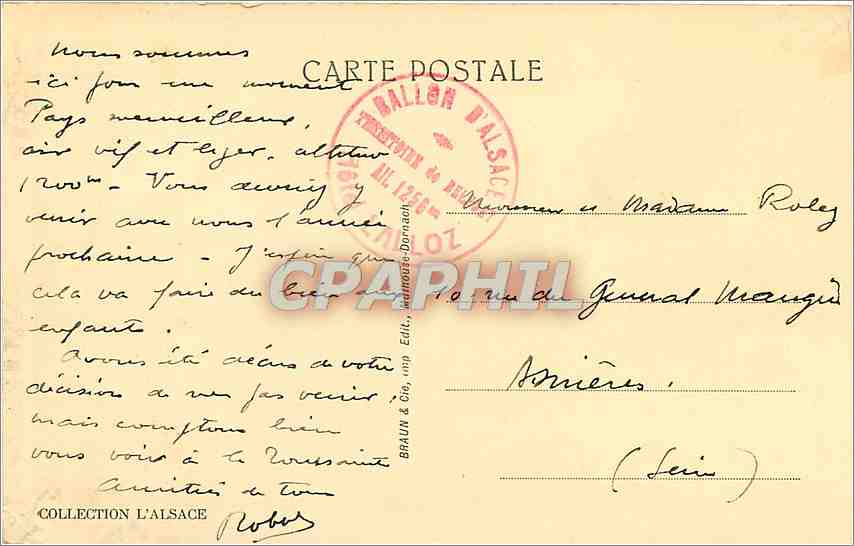 CARTE POSTALE
Nous sommes
ici pour un moment
Pays merveilleux,
air vif et léger, altitude
1200m - Vous devriez y
venir avec nous l'année
prochaine - J'espère que
cela va faire du bien aux
enfants.
Avons été déçus de votre
décision de ne pas venir,
mais comptons bien
vous voir à la Toussaint
Amitiés de tous
COLLECTION L'ALSACE
BALLON D'ALSACE
TERRITOIRE de BELFORT
Alt. 1256m
HOTEL
CPAPHIL
BRAUN & Cie, Imp Edit., Mulhouse-Dornach
Monsieur et Madame
10 rue du Général Mangin
Asnières.
(Seine)